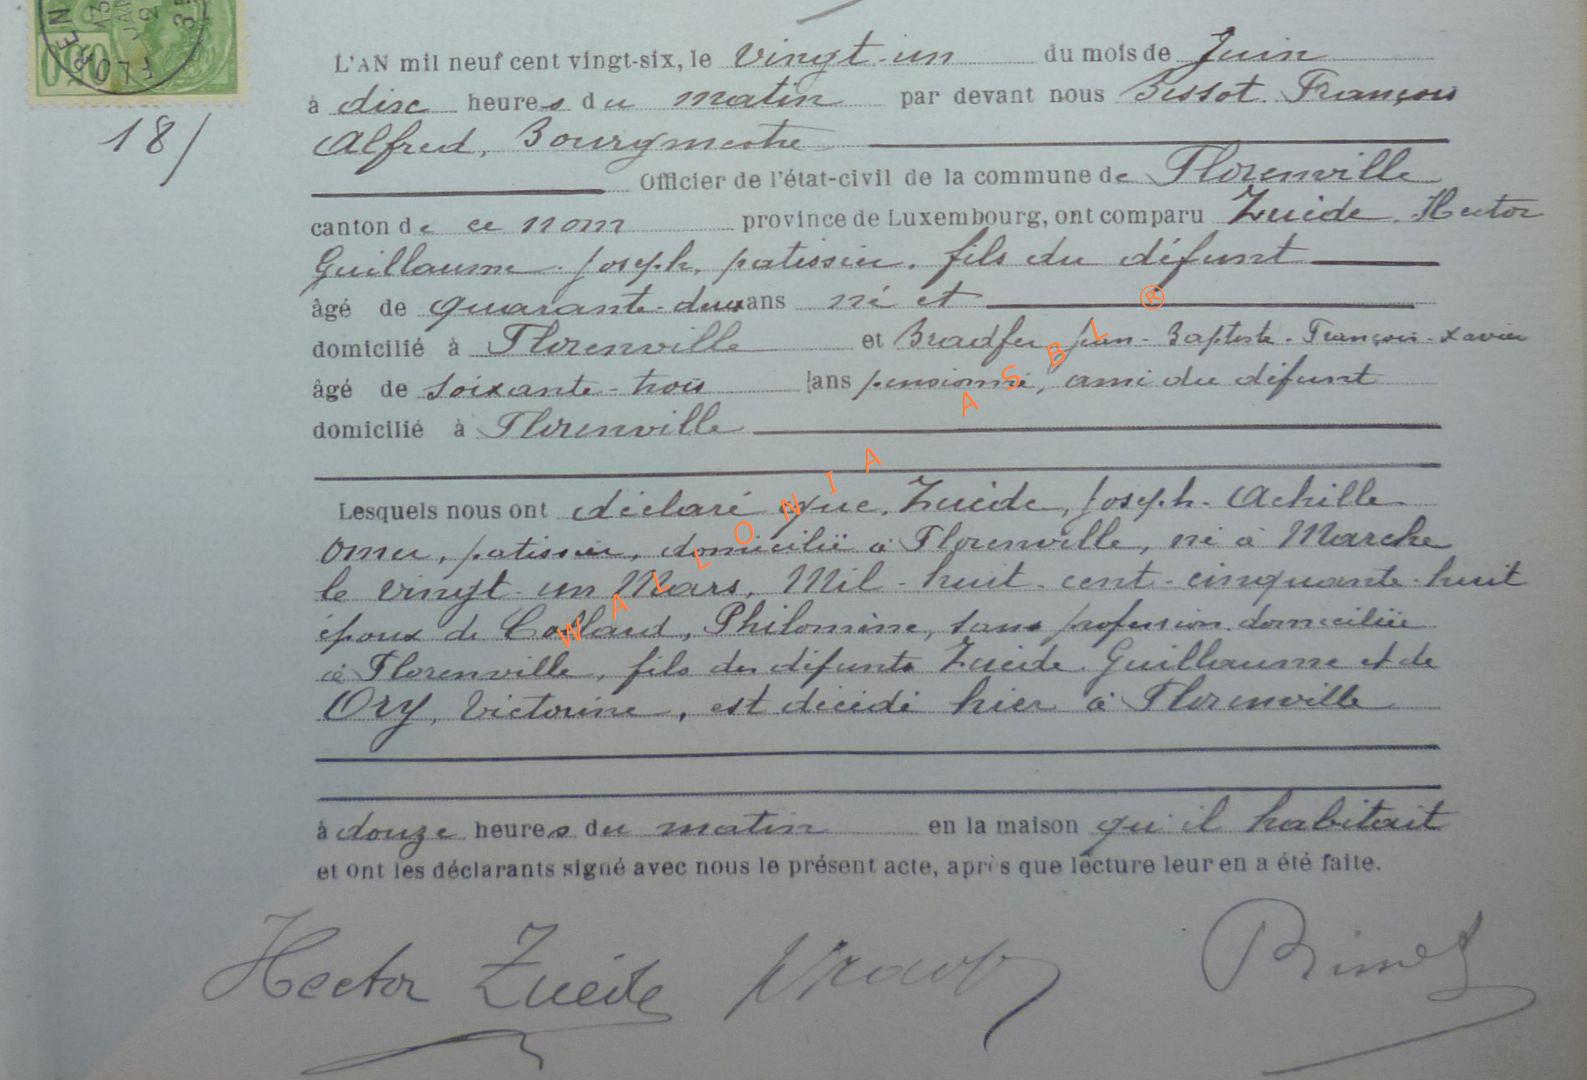 FLOREN
13
JAN
2
35
18/
L'AN mil neuf cent vingt-six, le vingt-un du mois de Juin
à disc heures du matin par devant nous Bissot François
Alfred, Bourgmestre
Officier de l'état-civil de la commune de Florenville
canton de ce nom province de Luxembourg, ont comparu Zuède, Hector
Guillaume Joseph, patissier, fils du défunt
âgé de quarante-deux ans né et
domicilié à Florenville et Bradfer Jean-Baptiste-François-Xavier
âgé de soixante-trois ans pensionné, ami du défunt
domicilié à Florenville
Lesquels nous ont déclaré que, Zuède, Joseph-Achille
Omer, patissier, domicilié à Florenville, né à Marche
le vingt-un Mars, Mil-huit-cent-cinquante-huit
époux de Collard, Philomène, sans profession domiciliée
à Florenville, fils des défunts Zuède Guillaume et de
Ory, Victorine, est décédé hier à Florenville
à douze heures du matin en la maison qu'il habitait
et ont les déclarants signé avec nous le présent acte, après que lecture leur en a été faite.
Hector Zuède
WALLONIA ASBL ®